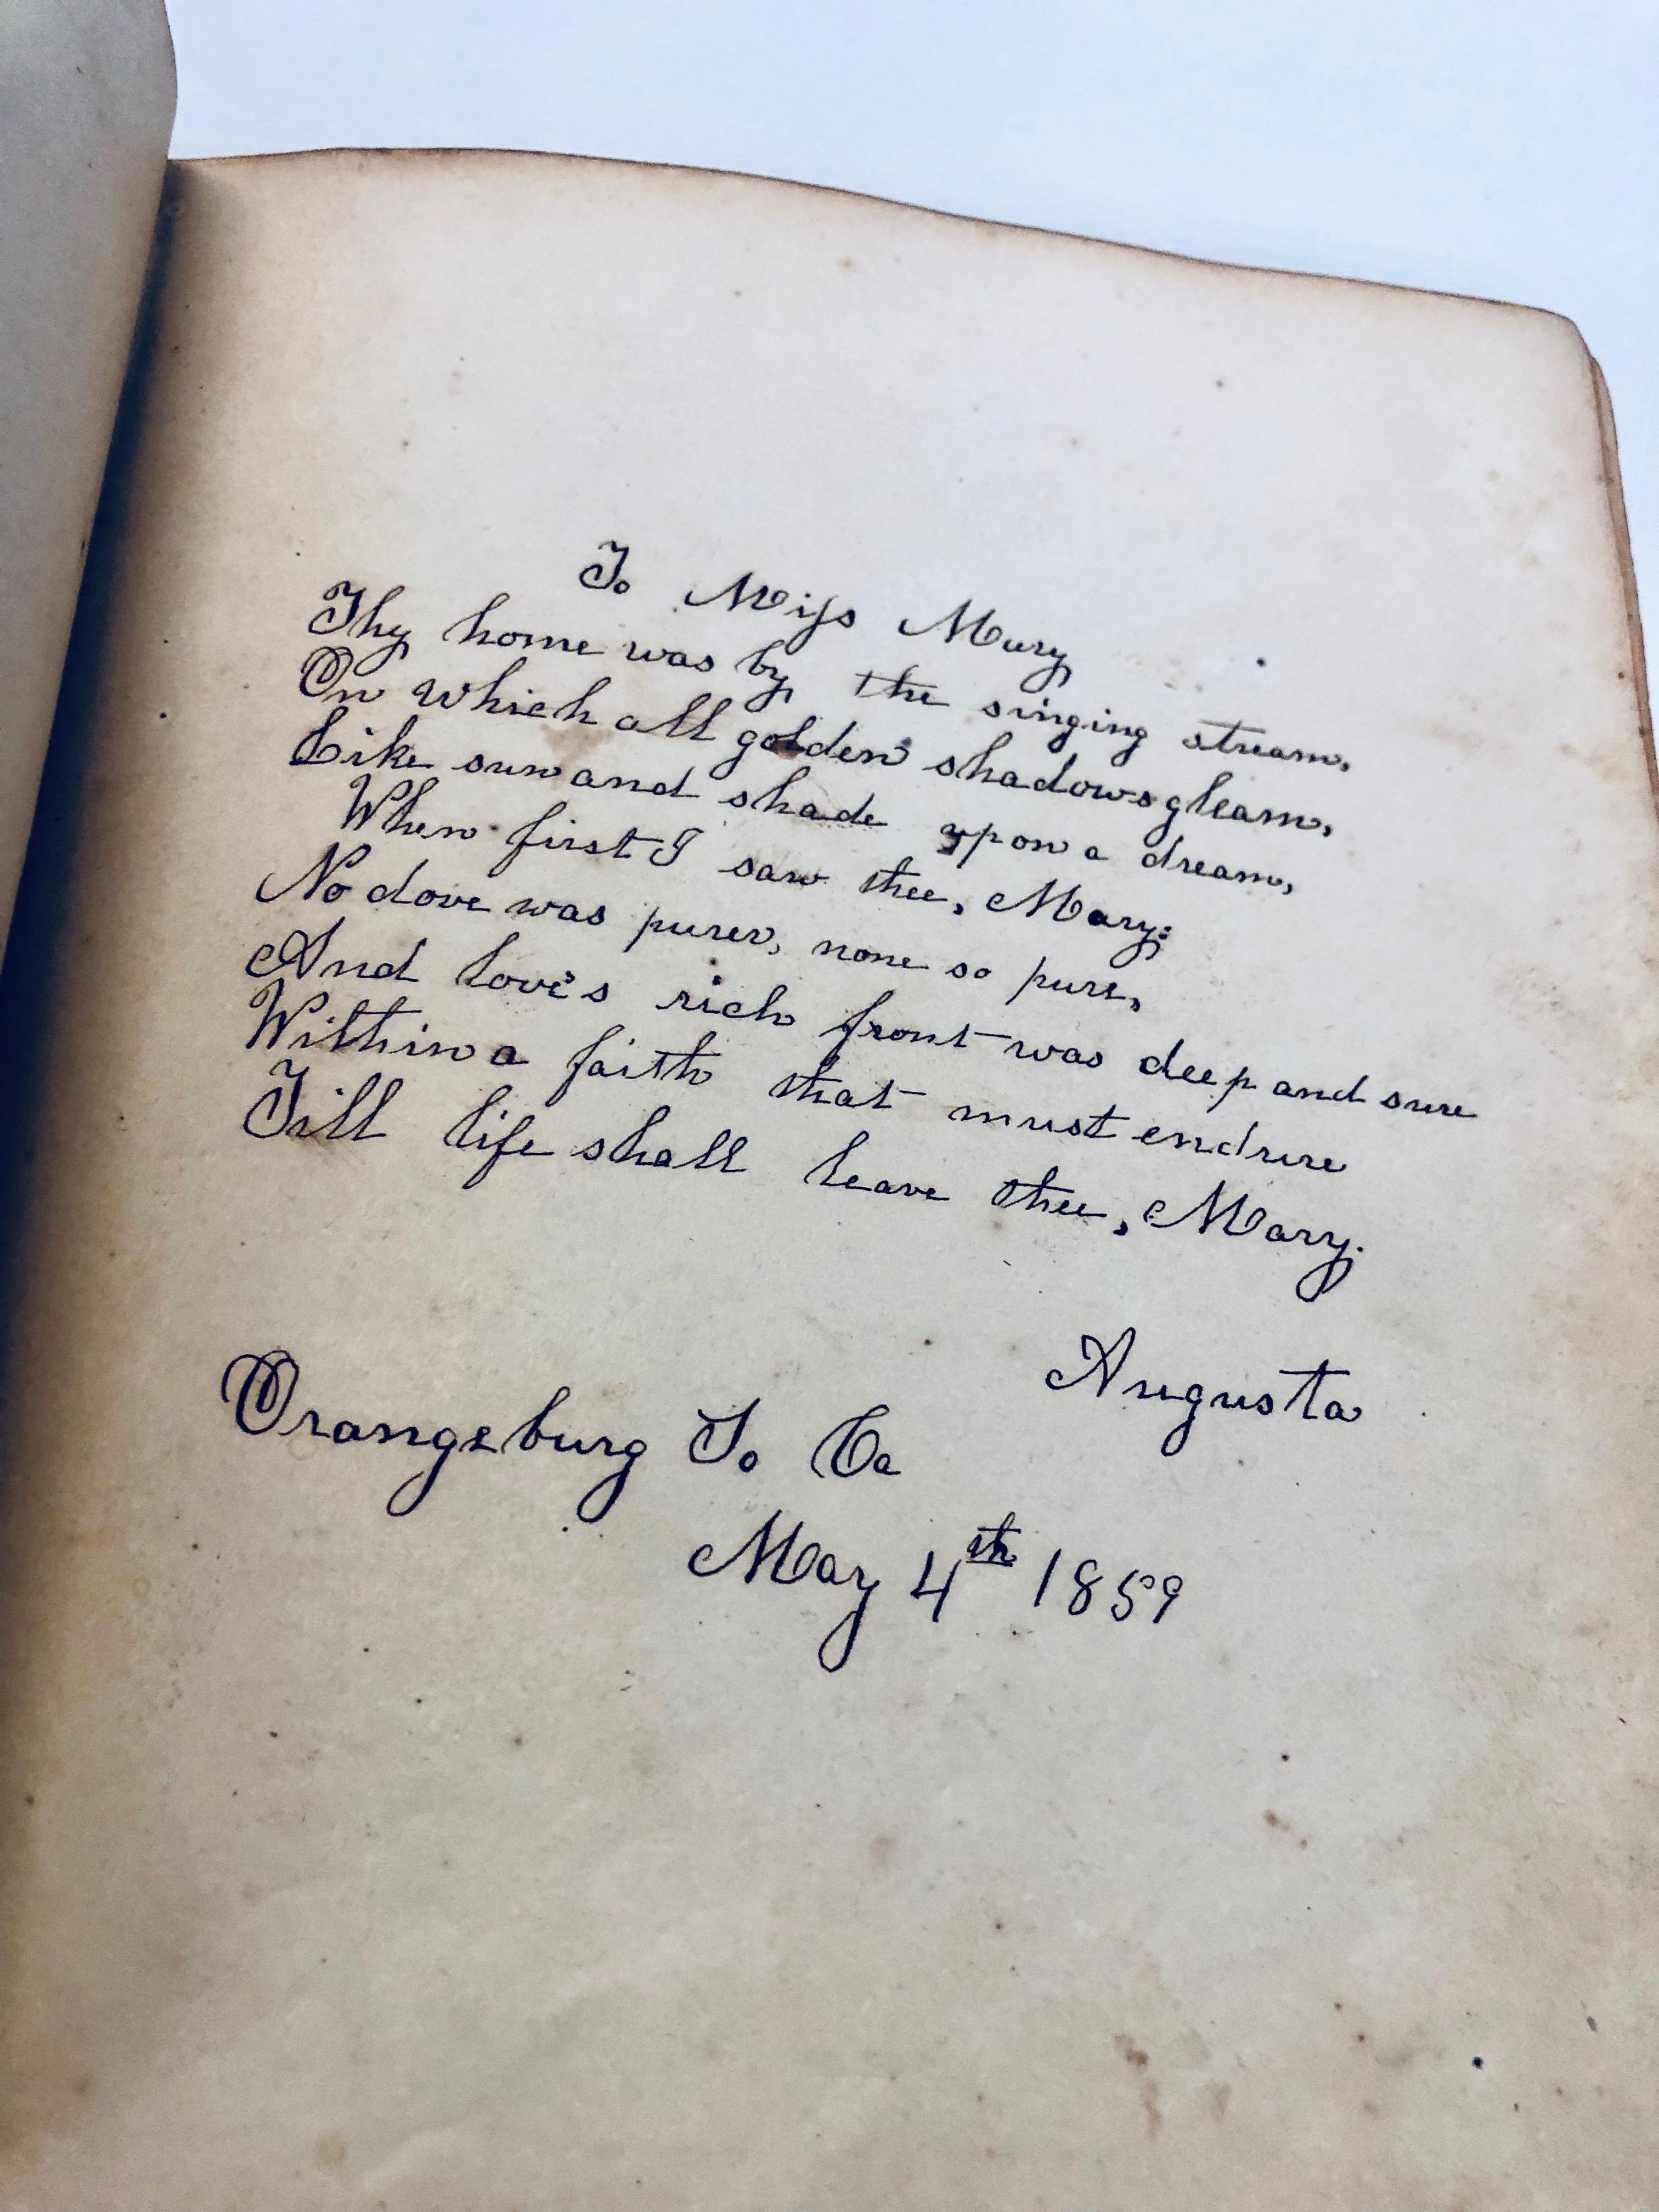 To Miss Mary
Thy home was by the singing stream,
On which all golden shadows gleam,
Like sun and shade upon a dream,
When first I saw thee, Mary;
No dove was purer, none so pure,
And love's rich front was deep and sure
Within a faith that must endure
Till life shall leave thee, Mary.
Augusta
Orangeburg So Ca
May 4th 1859